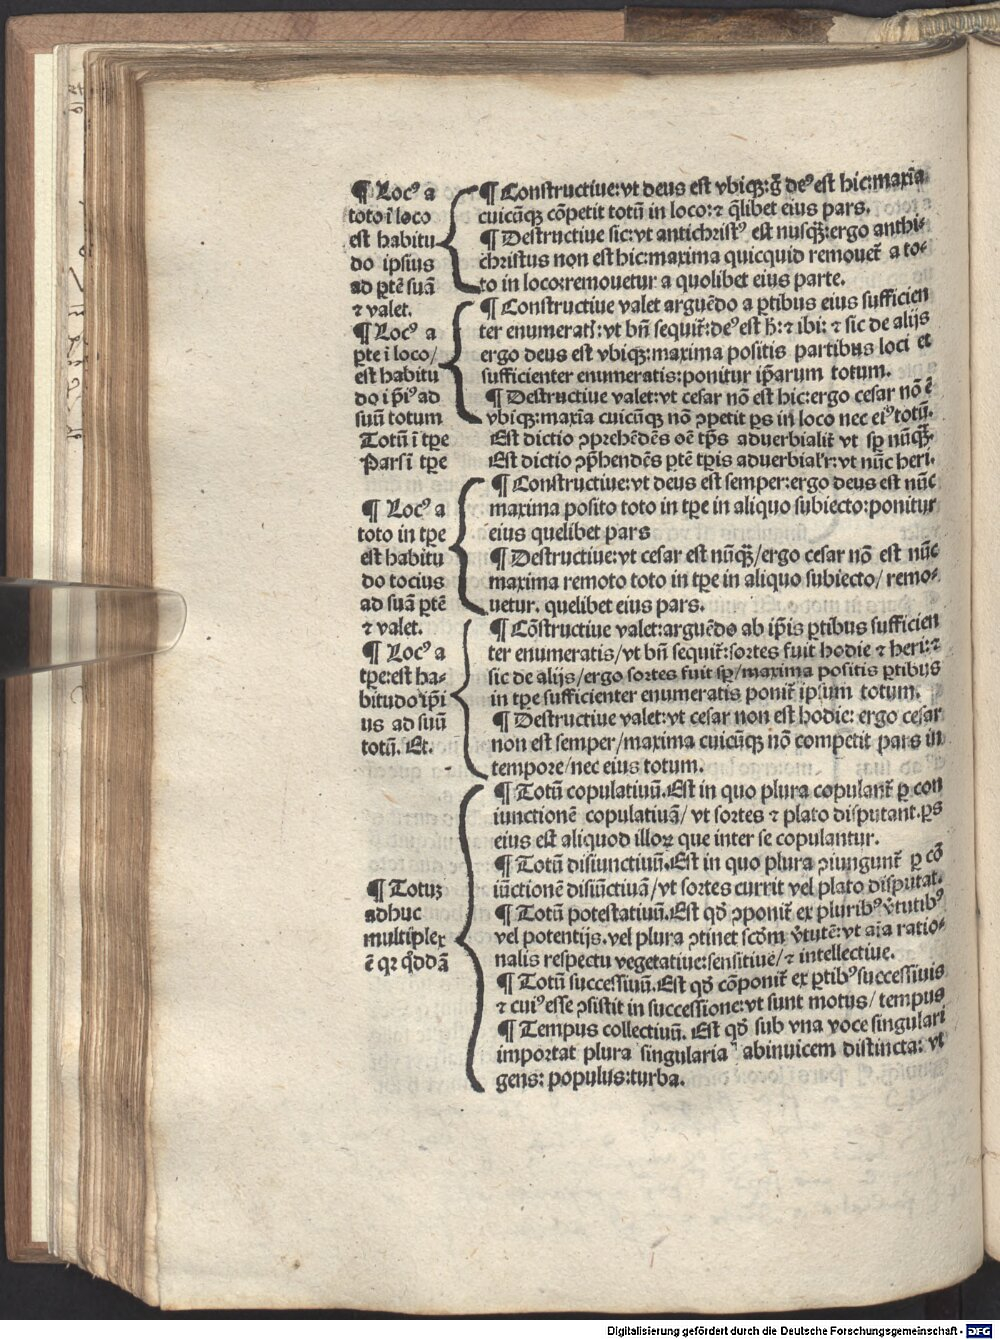 ¶ Locꝰ a
toto ī loco
est habitu
do ipsius
ad ꝑtē suā
⁊ valet.
¶ Constructiue: vt deus est vbiqꝫ: g̃ deꝰ est hic: maxīa
cuicūqꝫ cōpetit totū in loco: ⁊ q̄libet eius pars.
¶ Destructiue sic: vt antichristꝰ est nusqꝫ̄: ergo anthi-
christus non est hic: maxima quicquid remouet̄ a to-
to in loco: remouetur a quolibet eius parte.
¶ Locꝰ a
ꝑte ī loco/
est habitu
do ip̄iꝰ ad
suū totum
¶ Constructiue valet arguēdo a ꝑtibus eius sufficien
ter enumerati: vt bn̄ sequit̄: deꝰ est h̄: ⁊ ibi: ⁊ sic de alijs
ergo deus est vbiqꝫ: maxima positis partibus loci et
sufficienter enumeratis: ponitur ip̄arum totum.
¶ Destructiue valet: vt cesar nō est hic: ergo cesar nō ē
vbiqꝫ: maxīa cuicūqꝫ nō ꝯpetit ꝑs in loco nec eiꝰ totū.
Totū ī tꝑe Est dictio ꝯprehēdēs oē tꝑs aduerbialit̄ vt sꝑ nūqꝫ̄.
Pars ī tꝑe Est dictio ꝯp̄hendēs ꝑtē tꝑis aduerbial'r: vt nūc heri.
¶ Locꝰ a
toto in tꝑe
est habitu
do tocius
ad suā ꝑtē
⁊ valet.
¶ Constructiue: vt deus est semper: ergo deus est nūc
maxima posito toto in tꝑe in aliquo subiecto: ponitur
eius quelibet pars
¶ Destructiue: vt cesar est nūqꝫ̄/ ergo cesar nō est nūc
maxima remoto toto in tꝑe in aliquo subiecto/ remo-
uetur. quelibet eius pars.
¶ Locꝰ a
tꝑe: est ha-
bitudo ip̄i
us ad suū
totū. Et.
¶ Cōstructiue valet: arguēdo ab ip̄is ꝑtibus sufficien
ter enumeratis/ vt bn̄ sequit̄: sortes fuit hodie ⁊ heri: ⁊
sic de alijs/ ergo sortes fuit sꝑ/ maxima positis ꝑtibus
in tꝑe sufficienter enumeratis ponit̄ ipsum totum.
¶ Destructiue valet: vt cesar non est hodie: ergo cesar
non est semper/ maxima cuicūqꝫ nō competit pars in
tempore/ nec eius totum.
¶ Totuꝫ
adhuc
multiplex
ē qꝛ q̄ddā
¶ Totū copulatiuū. Est in quo plura copulant̄ ꝑ con
iunctionē copulatiuā/ vt sortes ⁊ plato disputant. ꝑs
eius est aliquod illoꝝ que inter se copulantur.
¶ Totū disiunctiuū. Est in quo plura ꝯiungunt̄ ꝑ cō
iūctionē disiūctiuā/ vt sortes currit vel plato disputat.
¶ Totū potestatiuū. Est qd̄ ꝯponit̄ ex pluribꝰ v̄tutibꝰ
vel potentijs. vel plura ꝯtinet scd̄m v̄tutē: vt aīa ratio-
nalis respectu vegetatiue: sensitiue/ ⁊ intellectiue.
¶ Totū successiuū. Est qd̄ cōponit̄ ex ꝑtibꝰ successiuis
⁊ cuiꝰ esse ꝯsistit in successione: vt sunt motus/ tempus
¶ Tempus collectiuū. Est qd̄ sub vna voce singulari
importat plura singularia abinuicem distincta: vt
gens: populus: turba.
Digitalisierung gefördert durch die Deutsche Forschungsgemeinschaft - DFG